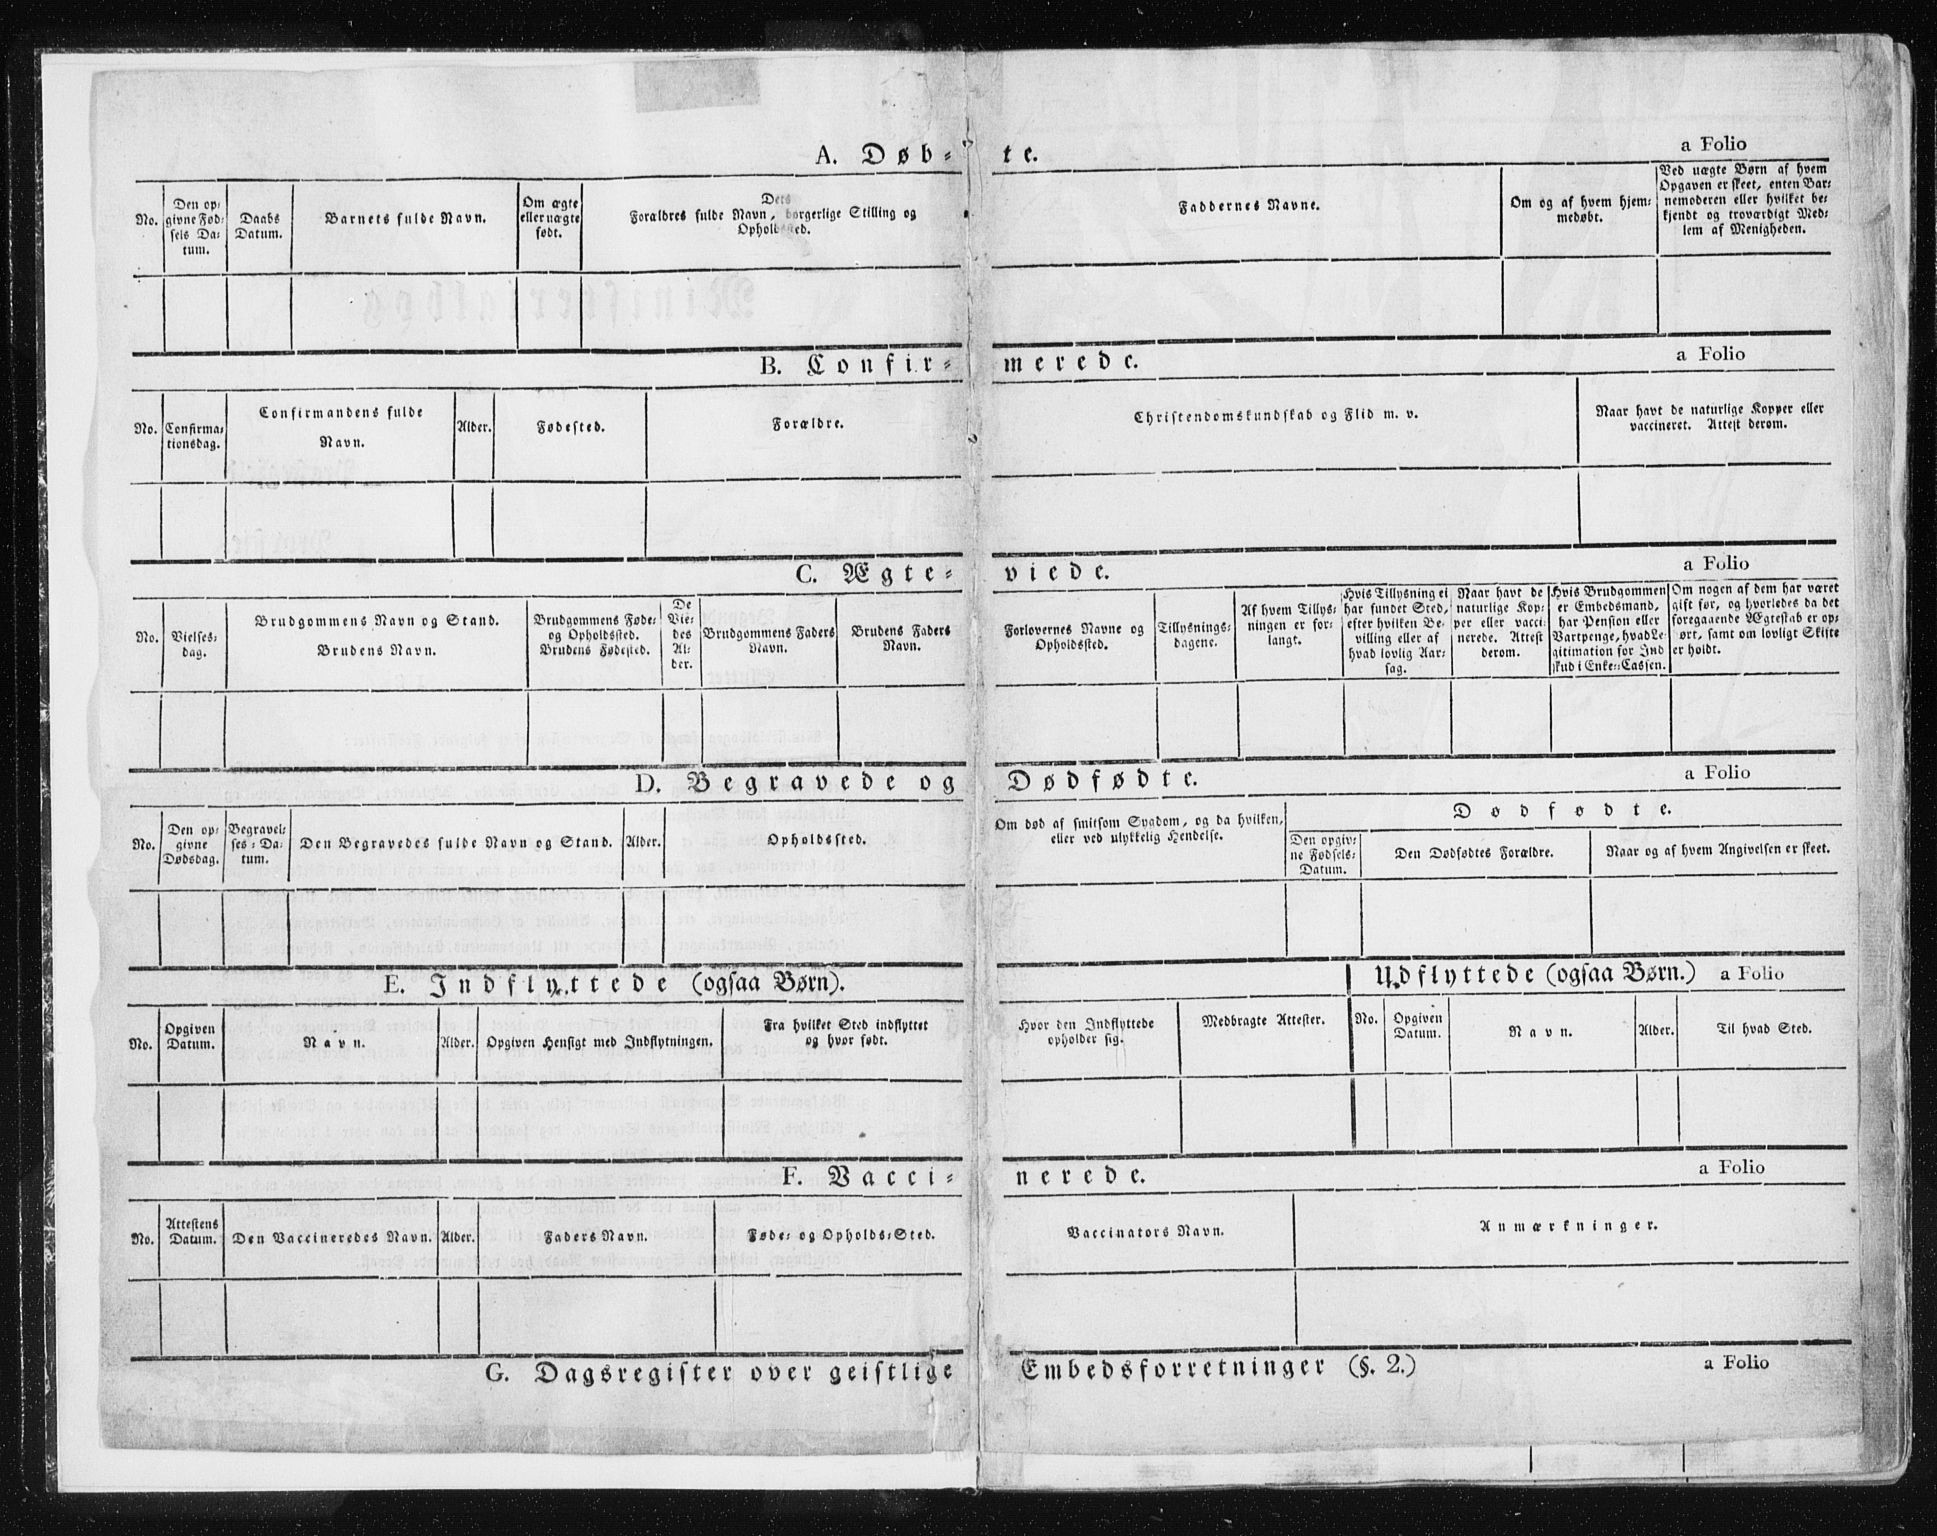 A. Døb- te. a Folio
No.
Den op-
givne Fød-
sels Da-
tum.
Daabs
Datum.
Barnets fulde Navn.
Om ægte
eller uægte
født.
Dets
Forældres fulde Navn, borgerlige Stilling og
Opholdssted.
Faddernes Navne.
Om og af hvem hjem-
medøbt.
Ved uægte Børn af hvem
Opgaven er skeet, enten Bar-
nemoderen eller hvilket be-
kjendt og troværdigt Med-
lem af Menigheden.
B. Confir- merede. a Folio
No.
Confirma-
tionsdag.
Confirmandens fulde
Navn.
Alder.
Fødested.
Forældre.
Christendomskundskab og Flid m. v.
Naar havt de naturlige Kopper eller
vaccineret. Attest derom.
C. Ægte- viede. a Folio
No.
Vielses-
dag.
Brudgommens Navn og Stand.
Brudens Navn.
Brudgommens Føde-
og Opholdssted.
Brudens Fødested.
De
Vie-
des
Al-
der.
Brudgommens Faders
Navn.
Brudens Faders
Navn.
Forlovernes Navne og
Opholdssted.
Tillysnings-
dagene.
Af hvem Tillys-
ningen er for-
langt.
Hvis Tillysning ei
har fundet Sted,
efter hvilken Be-
villing eller af
hvad lovlig Aar-
sag.
Naar havt de
naturlige Kop-
per eller vacci-
nerede. Attest
derom.
Hvis Brudgommen
er Embedsmand,
har Pension eller
Vartpenge, hvad Le-
gitimation for Ind
skud i Enke-Cassen.
Om nogen af dem har været
gift før, og hvorledes da det
foregaaende Ægteskab er op-
ørt, samt om lovligt Skifte
er holdt.
D. Begravede og Dødfødte. a Folio
No.
Den op-
givne
Dødsdag.
Begravel-
ses-Da-
tum.
Den Begravedes fulde Navn og Stand.
Alder.
Opholdssted.
Om død af smitsom Sygdom, og da hvilken,
eller ved ulykkelig Hendelse.
Dødfødte.
Den opgiv-
ne Fødsels-
Datum.
Den Dødfødtes Forældre.
Naar og af hvem Angivelsen er skeet.
E. Indflyttede (ogsaa Børn). Udflyttede (ogsaa Børn.) a Folio
No.
Opgiven
Datum.
Navn.
Alder.
Opgiven Hensigt med Indflytningen.
Fra hvilket Sted indflyttet
og hvor født.
Hvor den Indflyttede
opholder sig.
Medbragte Attester.
No.
Opgiven
Datum.
Navn.
Alder.
Til hvad Sted.
F. Vacci- nerede. a Folio
No.
Attestens
Datum.
Den Vaccineredes Navn.
Alder.
Faders Navn.
Føde- og Opholds-Sted.
Vaccinators Navn.
Anmærkninger.
G. Dagsregister over geistlige Embedsforretninger (§. 2.) a Folio